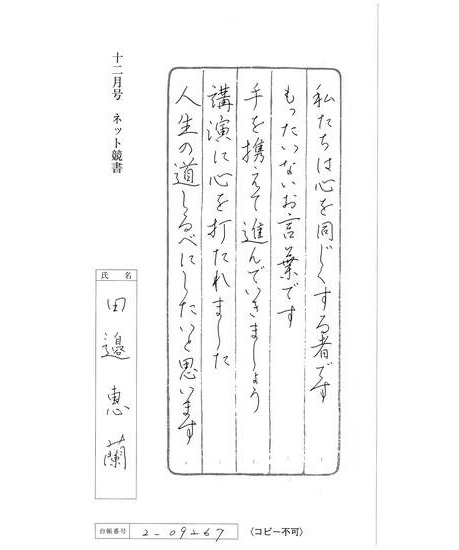 私たちは心を同じくする者です
もったいないお言葉です
手を携えて進んでいきましょう
講演に心を打たれました
人生の道しるべにしたいと思います
十二月号 ネット競書
氏名
田邉恵蘭
台帳番号 2-09267
(コピー不可)